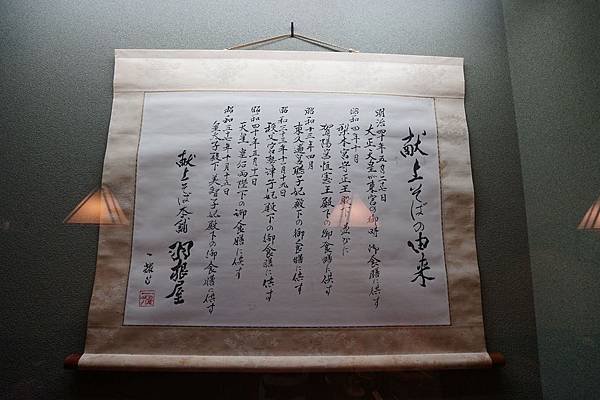 献上そばの由来
明治四十年五月二十二日
大正天皇が東宮の御時 御食膳に供す
昭和四年十月
梨本宮守正王殿下並びに
賀陽宮恒憲王殿下の御食膳に供す
昭和十三年四月
東久邇宮聡子妃殿下の御食膳に供す
昭和二十三年十一月十九日
秩父宮勢津子妃殿下の御食膳に供す
昭和四十年五月十一日
天皇 皇后両陛下の御食膳に供す
昭和
皇太子殿下美智子妃殿下の御食膳に供す
献上そば本舗 羽根屋